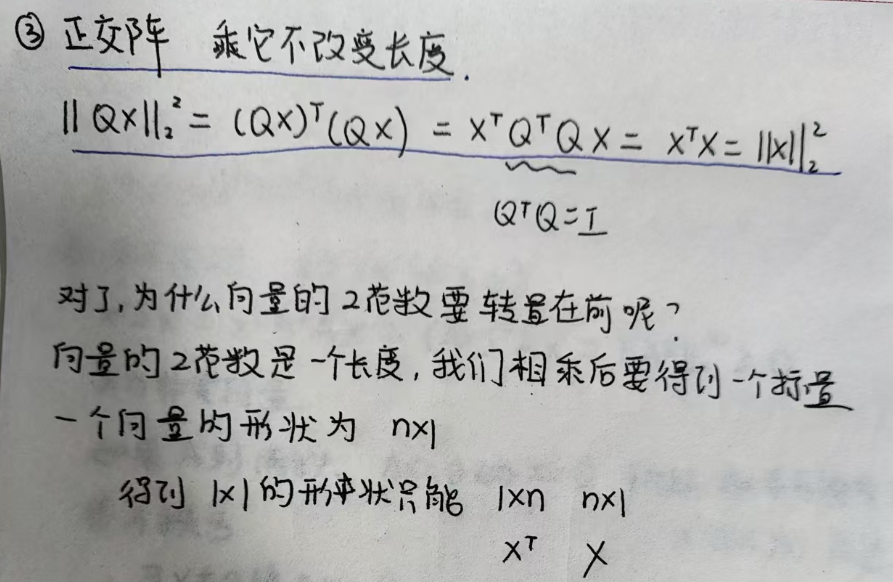 ③ 正交阵 乘它不改变长度.
||Qx||₂² = (Qx)ᵀ(Qx) = xᵀQᵀQx = xᵀx = ||x||₂²
QᵀQ=I
对了,为什么向量的2范数要转置在前呢?
向量的2范数是一个长度,我们相乘后要得到一个标量
一个向量的形状为 n×1
得到 1×1的形状只能 1×n n×1
xᵀ x